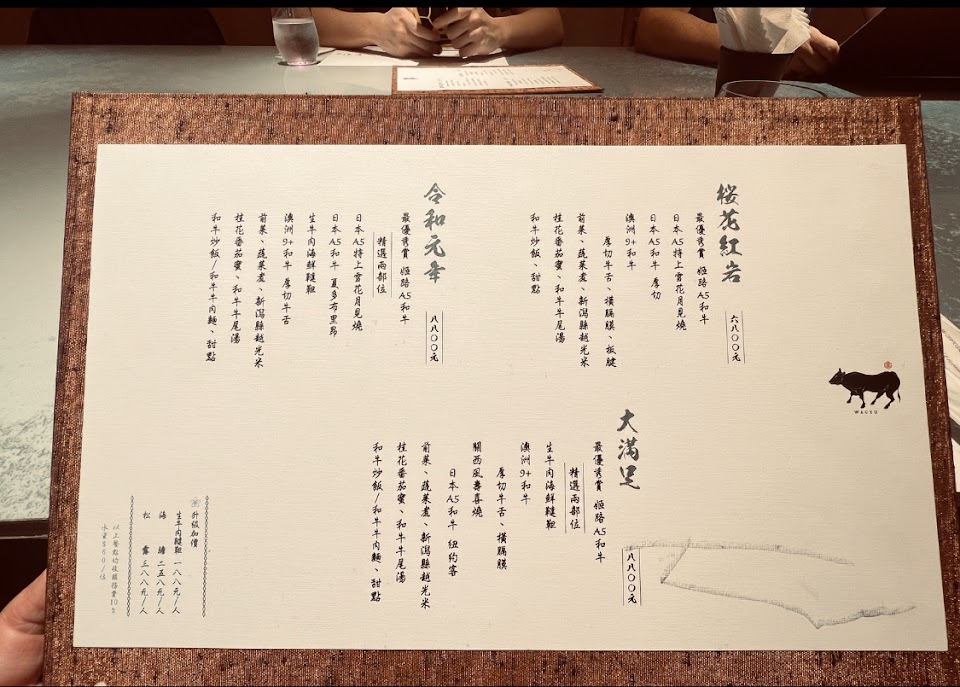 桜花紅岩
六八〇〇元
最優秀賞 姬路A5和牛
日本A5特上雪花月見燒
日本A5和牛 厚切
澳洲9+和牛
厚切牛舌、橫膈膜、板腱
前菜、蔬菜煮、新潟縣越光米
桂花番茄蜜、和牛牛尾湯
和牛炒飯、甜點
令和元年
八八〇〇元
最優秀賞 姬路A5和牛
精選兩部位
日本A5特上雪花月見燒
日本A5和牛 夏多布里昂
生牛肉海鮮韃靼
澳洲9+和牛 厚切牛舌
前菜、蔬菜煮、新潟縣越光米
桂花番茄蜜、和牛牛尾湯
和牛炒飯/和牛牛肉麵、甜點
WAGYU
大滿足
一八八〇〇元
最優秀賞 姬路A5和牛
精選兩部位
生牛肉海鮮韃靼
澳洲9+和牛
厚切牛舌、橫膈膜
關西風壽喜燒
日本A5和牛 紐約客
前菜、蔬菜煮、新潟縣越光米
桂花番茄蜜、和牛牛尾湯
和牛炒飯/和牛牛肉麵、甜點
升級加價
生牛肉韃靼 一八八元/人
海膽 二五八元/人
松露 三八八元/人
以上餐點均收服務費10%
水資$60/位